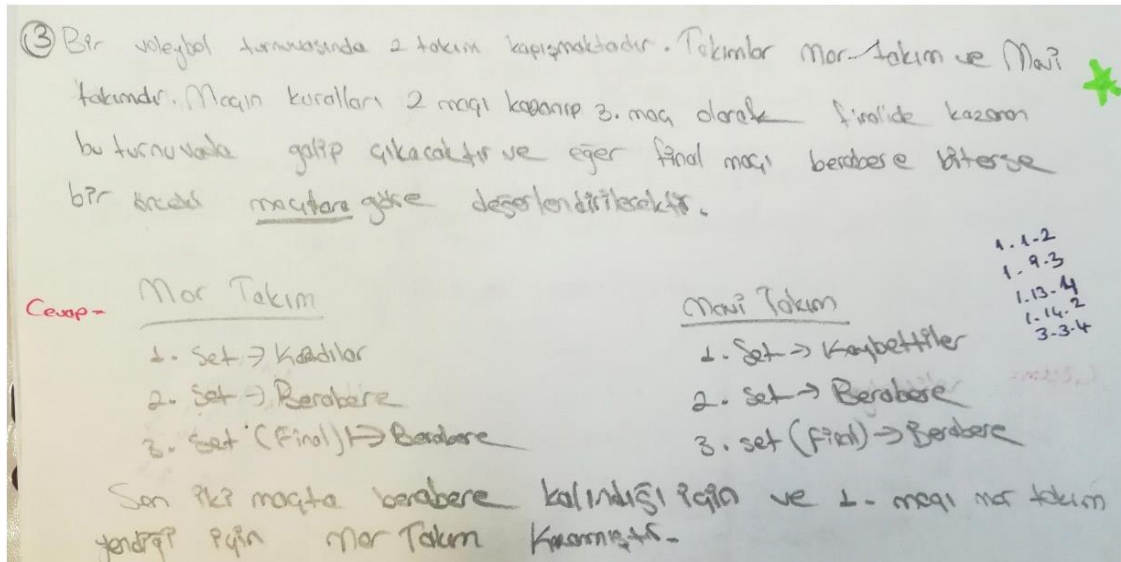 3 Bir voleybol turnuvasında 2 takım kapışmaktadır. Takımlar Mor takım ve Mavi
takımdır. Maçın kuralları 2 maçı kazanıp 3. maç olarak finalide kazanan
bu turnuvada galip çıkacaktır ve eğer final maçı berabere biterse
bir önceki maçlara göre değerlendirilecektir.
1.1-2
1-9-3
1.13-4
1-14-2
3-3-4
Cevap-
Mor Takım
1. Set → Kazandılar
2. Set → Berabere
3. Set (Final) → Berabere
Mavi Takım
1. Set → Kaybettiler
2. Set → Berabere
3. set (final) → Berabere
Son iki maçta berabere kalındığı için ve 1. maçı mor takım
yendiği için Mor Takım Kazanmıştır.